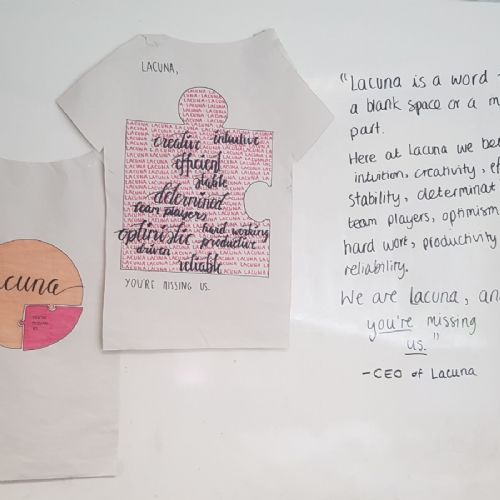 LACUNA,
creative intuitive
efficient
stable
determined
team players
optimistic hard working
driven productive
reliable
YOU'RE MISSING US.
cuna
"Lacuna is a word
a blank space or a m
part.
Here at Lacuna we be
intuition, creativity, ef
stability, determinat
team players, optimism
hard work, productivity
reliability.
We are lacuna, an
you're missing
us."
-CEO of Lacuna